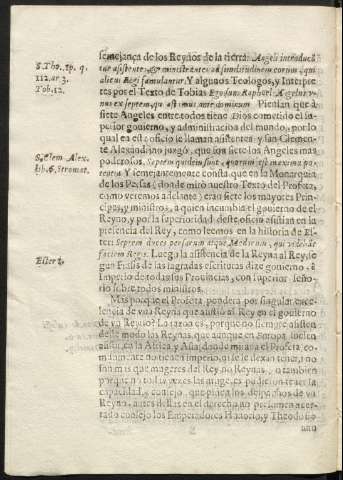 semejança de los Reynos de la tierra: Angeli introducũ
tur assistentes, & ministrantes ad similitudinem eorum, qui
alicui Regi famulantur. Y algunos Teologos, y Interpre
tes por el Texto de Tobias Ego sum Raphael Angelus v-
nus ex septem, qui astamus ante dominum Piensan que à
siete Angeles entre todos tiene Dios cometido el su
perior gouierno, y administracion del mundo, por lo
qual en este oficio se llaman assistentes: y san Clemen-
te Alexandrino juzgò, que son siete los Angeles mas
poderosos, Septem quidem sunt, quorum est maxima po-
tentia. Y semejantemente consta que en la Monarquia
de los Persas (donde mirò nuestro Texto del Profeta,
como veremos adelante) eran siete los mayores Prin-
cipes, y ministros, a quien incumbia el gouierno de el
Reyno, y por la superioridad deste oficio assistian en la
presencia del Rey, como leemos en la historia de Es-
ter: Septem duces persarum atque Medorum, qui videbãt
faciem Regis. Luego la assistencia de la Reyna al Rey, se
gun frasis de las sagradas escrituras dize gouierno, è
Imperio de todas sus Prouincias, con superior seño-
rio sobre todos ministros.
Mas porque el Profeta pondera por singular exce-
lencia de vna Reyna que assistio al Rey en el gouierno
de su Reyno? La razon es, porque no siempre assisten
deste modo las Reynas, que aunque en Europa suceda
assi, en la Africa, y Asia, donde miraua el Profeta, co-
munmente no tienen imperio, ni se le dexan tener, i no
son mas que mugeres del Rey, no Reynas, o tambien
porque no todas vezes las mugeres pudieron tener la
capacidad, y consejo, que pide a los despachos de vn
Reyno, antes dellas en el derecho presumen acer-
tado consejo los Emperadores Honorio, y Theodosio
S. Tho. 1p. q.
112. ar. 3.
Tob. 12.
S. Clem. Alex.
lib. 6. Stromat.
Ester 1.